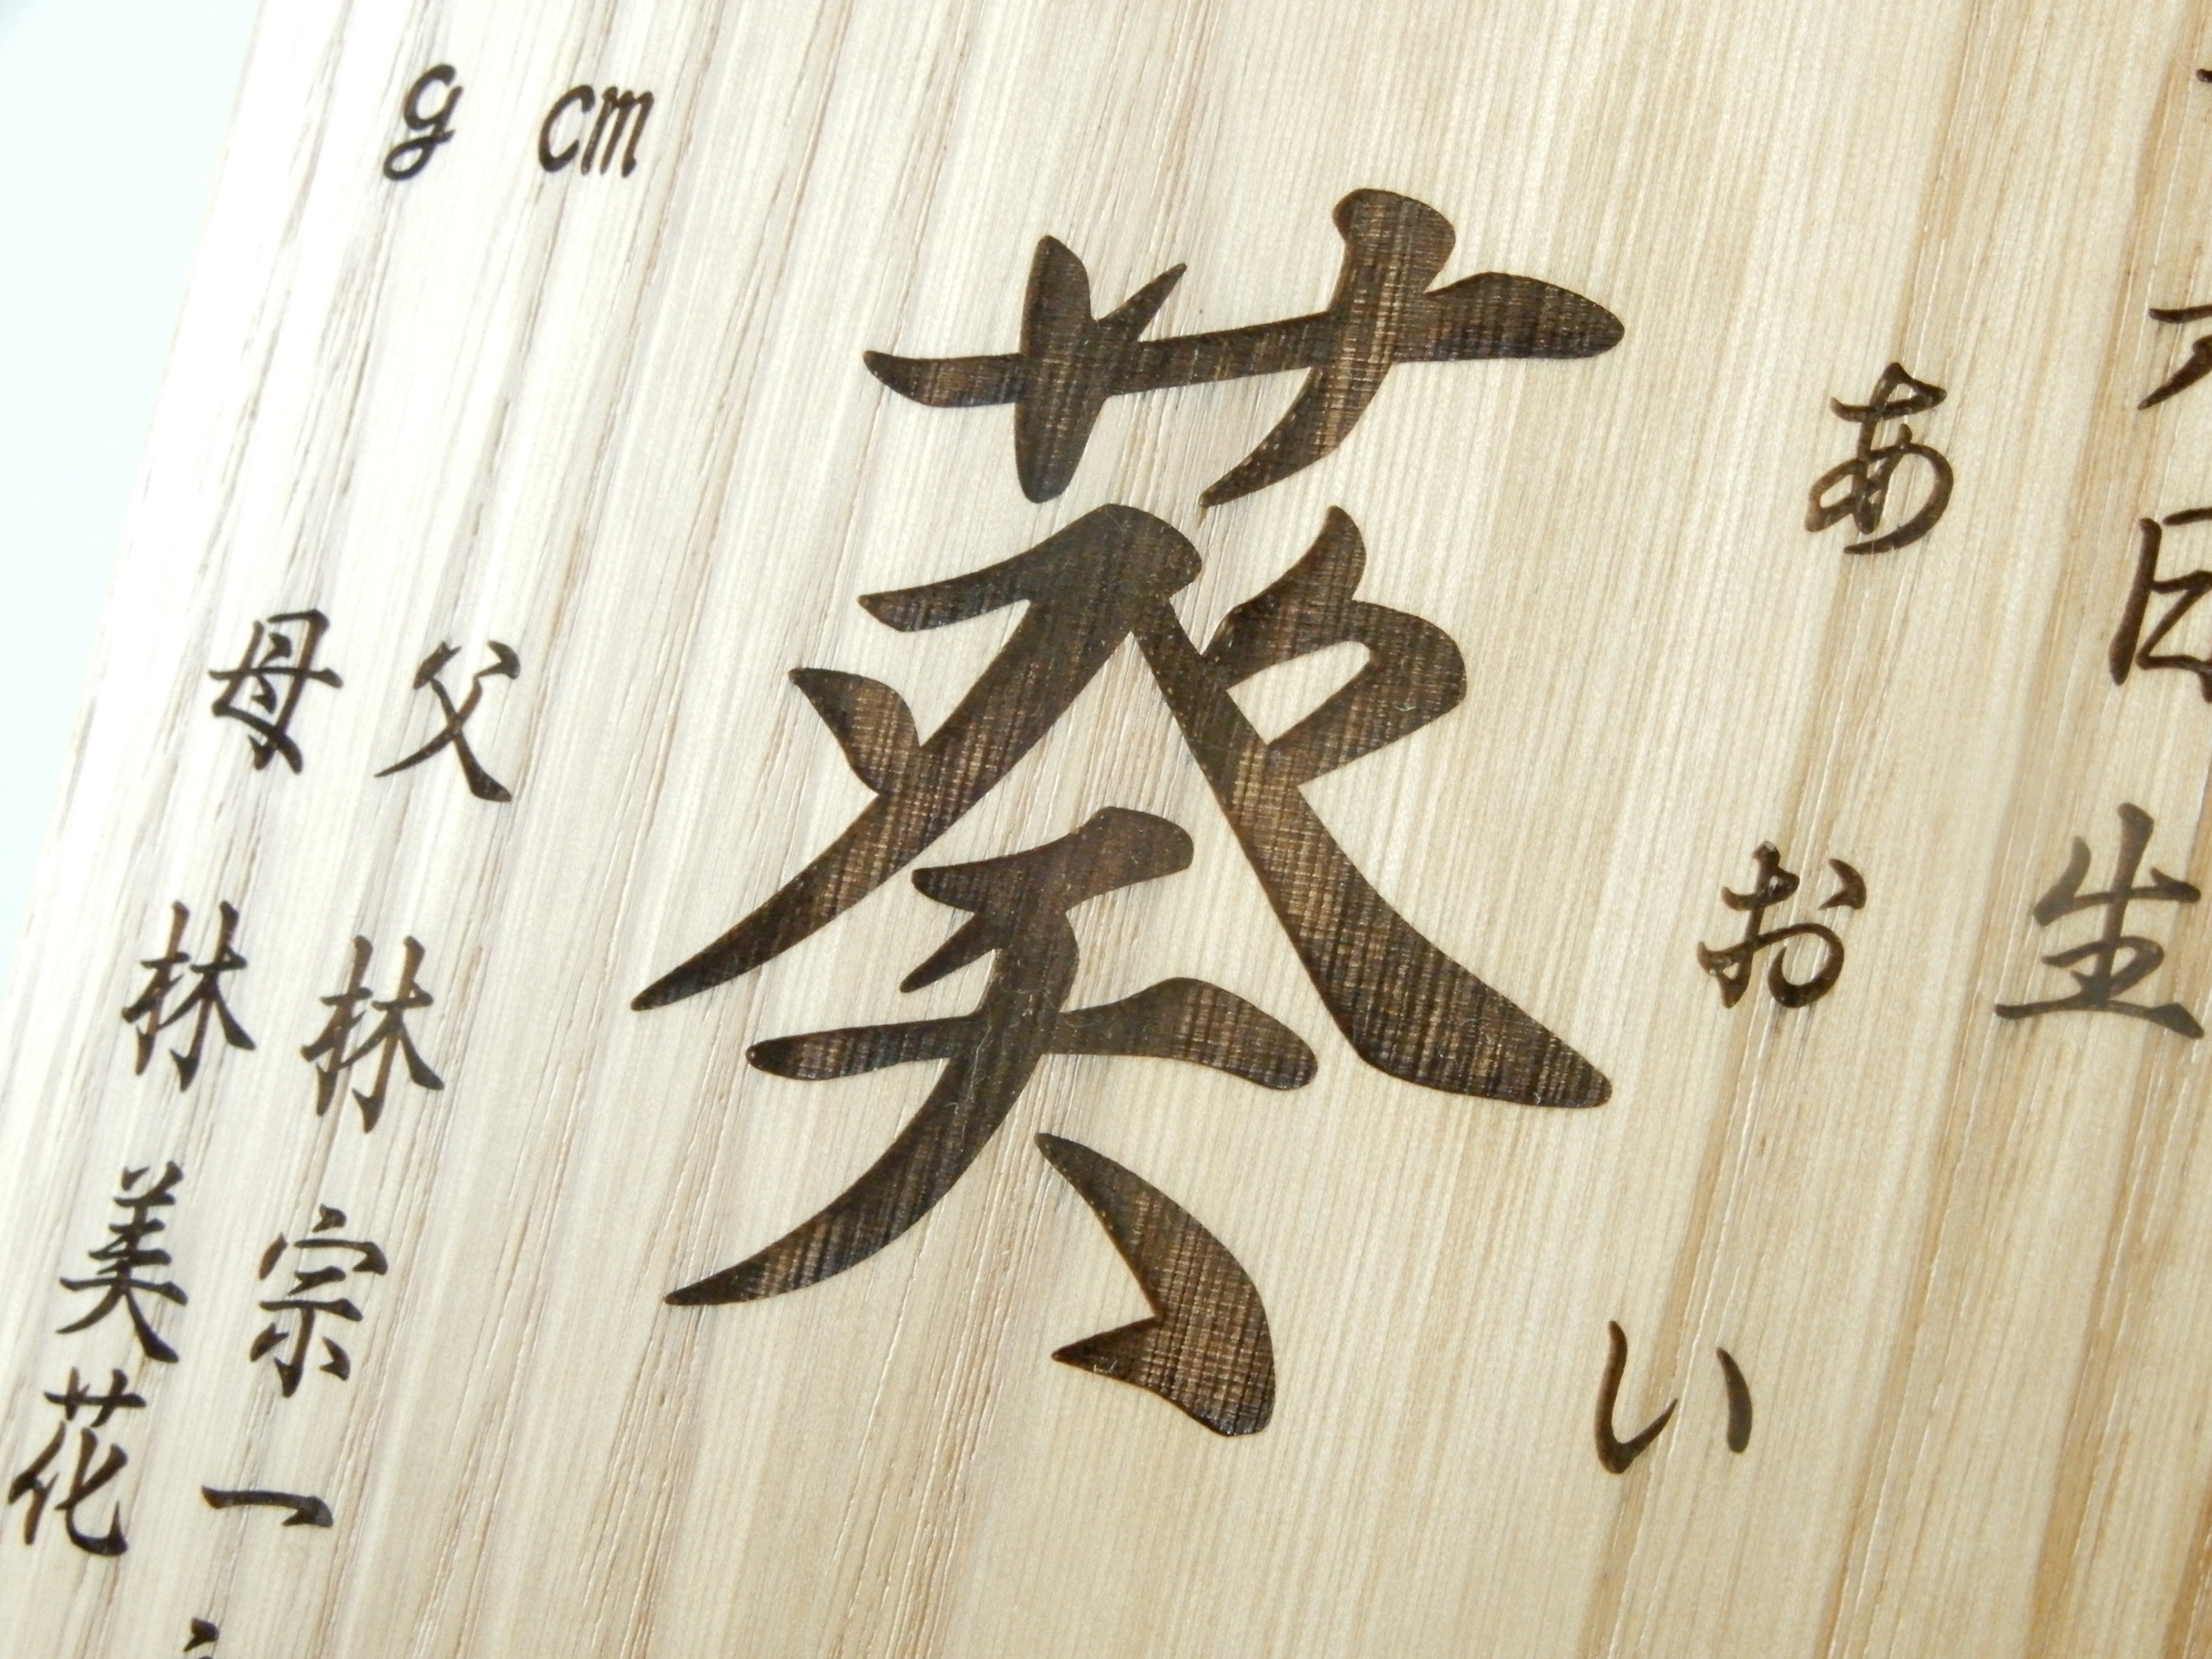 日生
あおい
葵
cm
g
父 林 宗一
母 林 美花